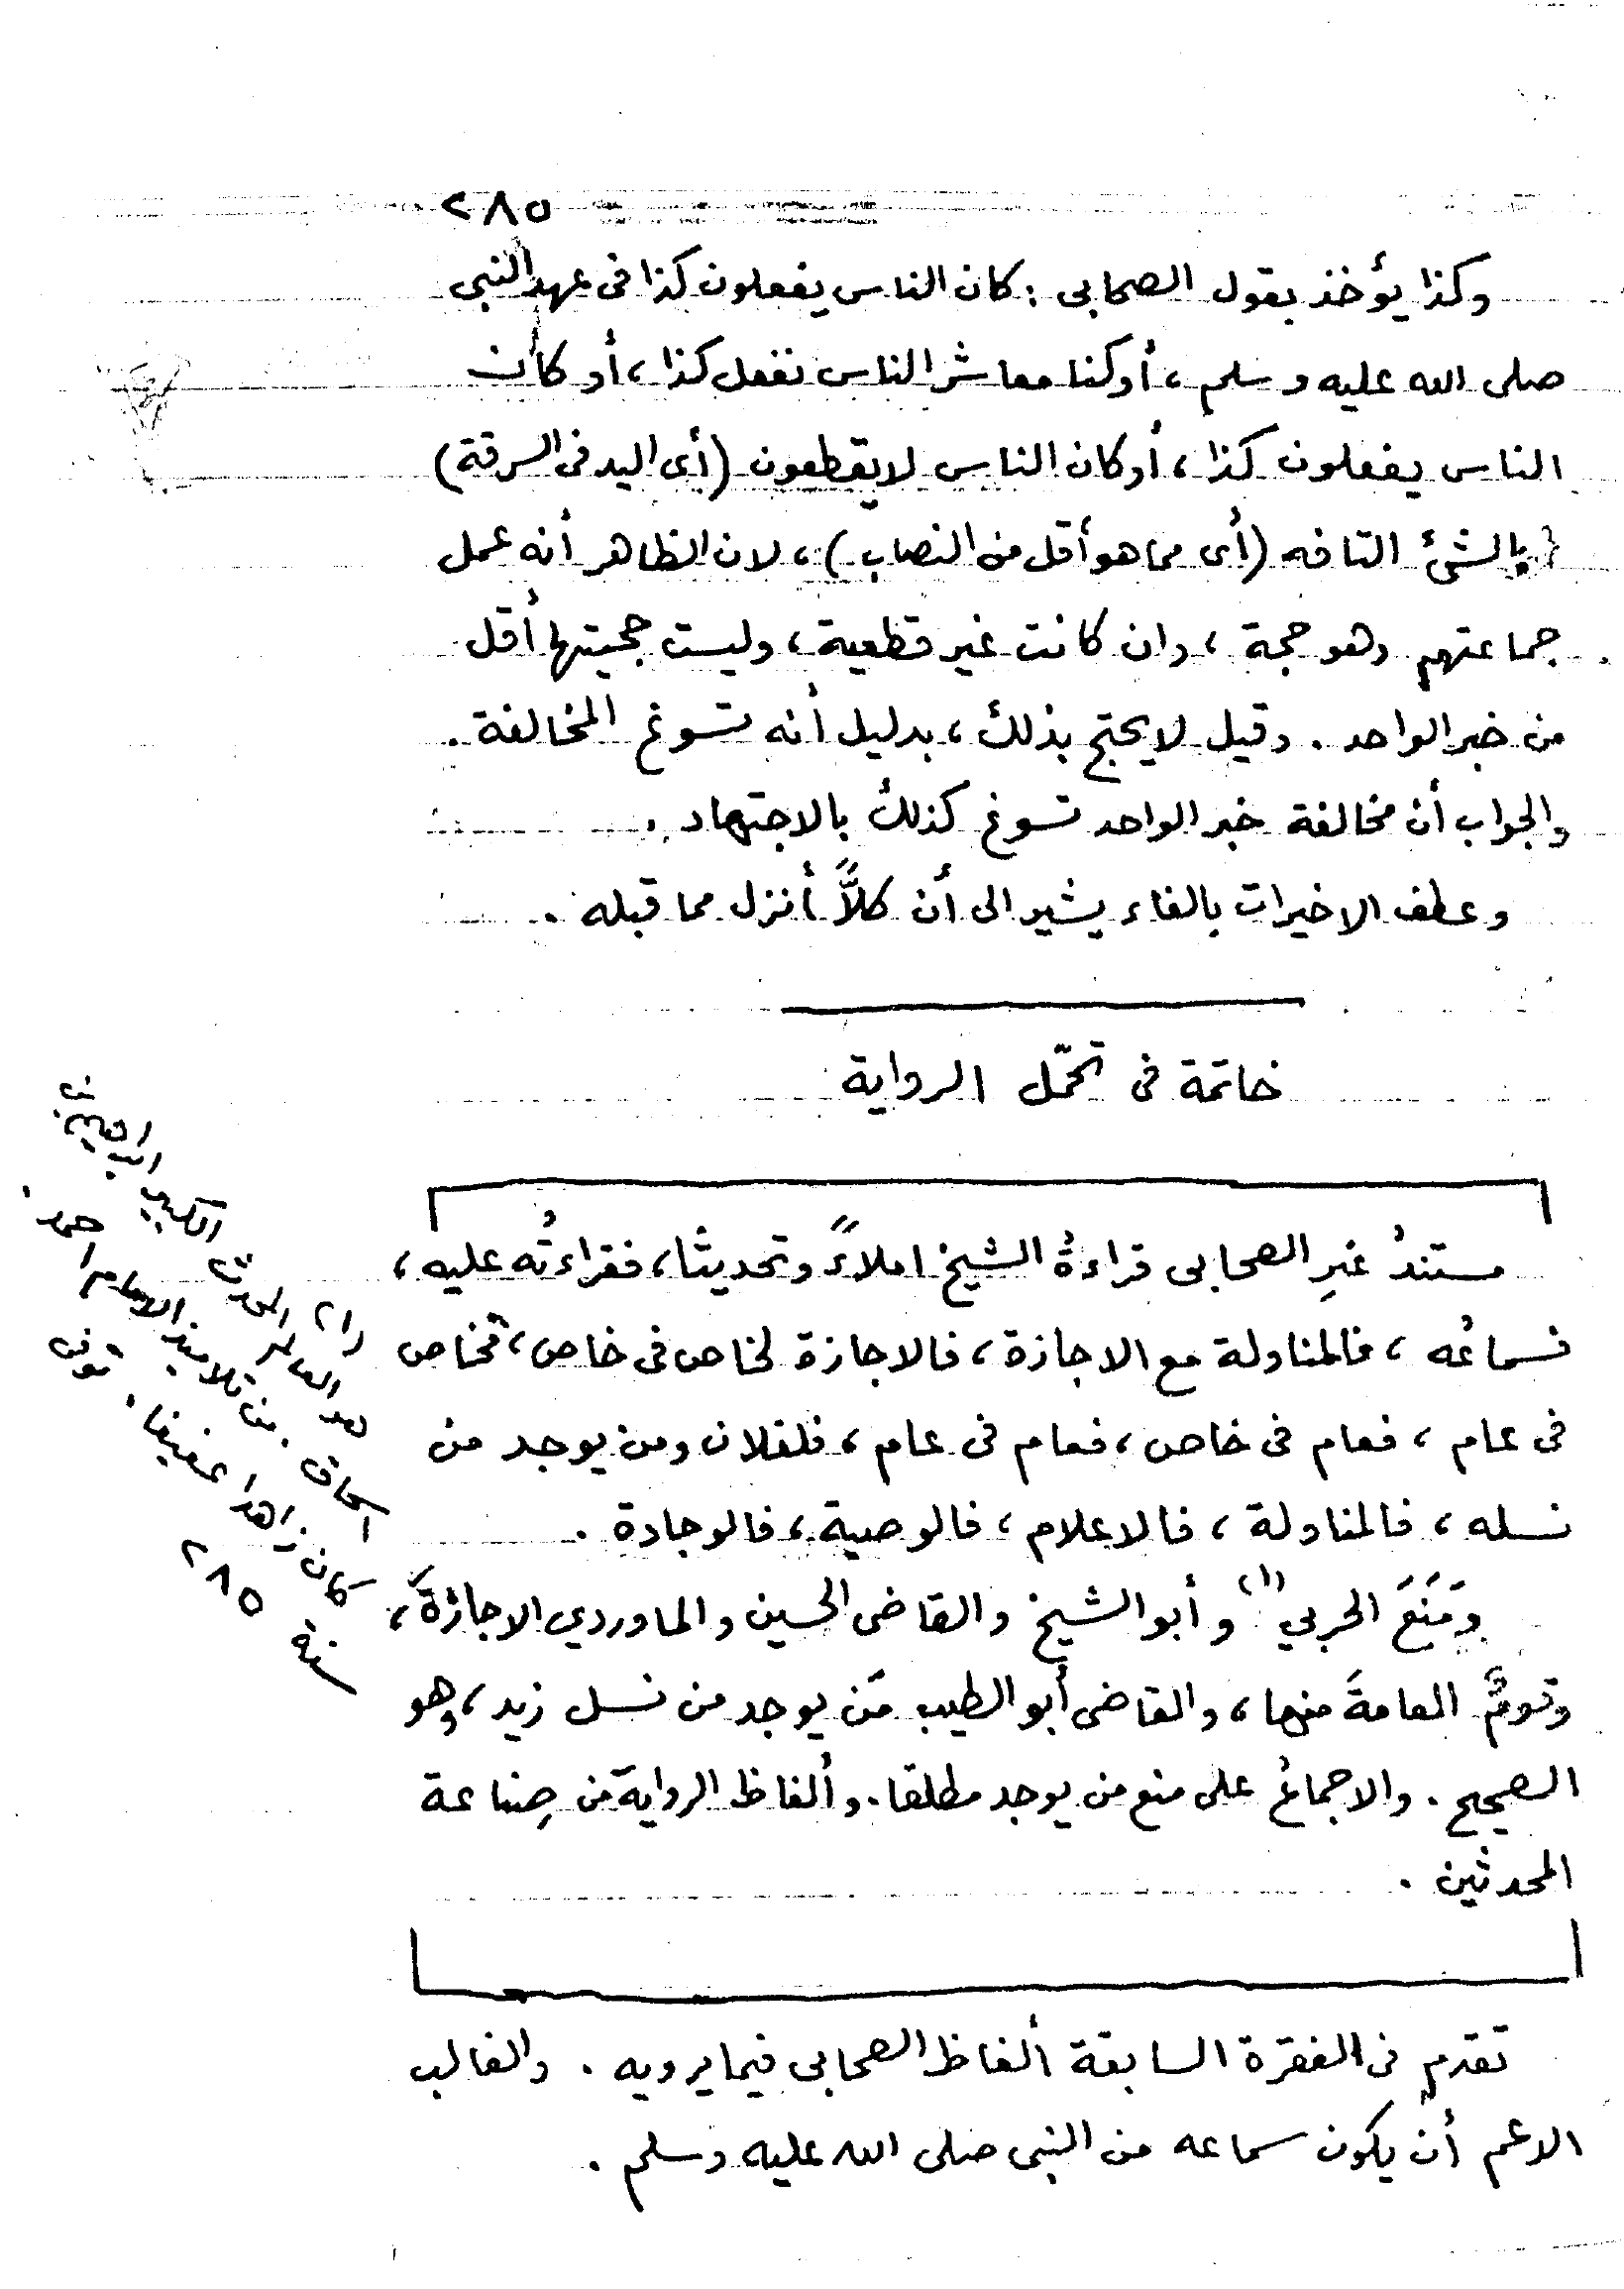 ٢٨٥
وكذا يؤخذ بقول الصحابى : كان الناس يفعلون كذا فى عهد النبى
صلى الله عليه وسلم ، أو كنا معاشر الناس نفعل كذا ، أو كان
الناس يفعلون كذا ، أو كان الناس لا يقطعون (أى اليد فى السرقة)
بالشئ التافه (أى مما هو أقل من النصاب) ، لان الظاهر أنه عمل
جماعتهم وهو حجة ، وان كانت غير قطعية ، وليست حجيتها أقل
من خبر الواحد . وقيل لا يحتج بذلك ، بدليل أنه تسوغ المخالفة .
والجواب أن مخالفة خبر الواحد تسوغ كذلك بالاجتهاد .
وعطف الاخيرات بالفاء يشير الى أن كلاًّ أنزل مما قبله .
خاتمة فى تحمّل الرواية
مستندُ غيرِ الصحابى قراءةُ الشيخ املاءً وتحديثا ، فقراءتُه عليه ،
فسماعُه ، فالمناولة مع الاجازة ، فالاجازة لخاص فى خاص ، فخاص
فى عام ، فعام فى خاص ، فعام فى عام ، فلفلان ومن يوجد من
نسله ، فالمناولة ، فالاعلام ، فالوصية ، فالوجادة .
ومَنَعَ الحربي (١) وأبو الشيخ والقاضى الحسين والماوردي الاجازةَ ،
وقومٌ العامةَ منها ، والقاضى أبو الطيب مَن يوجد من نسل زيد ، وهو
الصحيح . والاجماعُ على منع من يوجد مطلقا . وألفاظ الرواية من صِناعة
المحدثين .
تقدم فى الفقرة السابقة ألفاظ الصحابى فيما يرويه . والغالب
الاعم أن يكون سماعه من النبى صلى الله عليه وسلم .
(١) المحدث الكبير
العالم
من تلاميذ الامام احمد .
اسحاق .
كان زاهدا عفيفا . توفى
سنة ٢٨٥